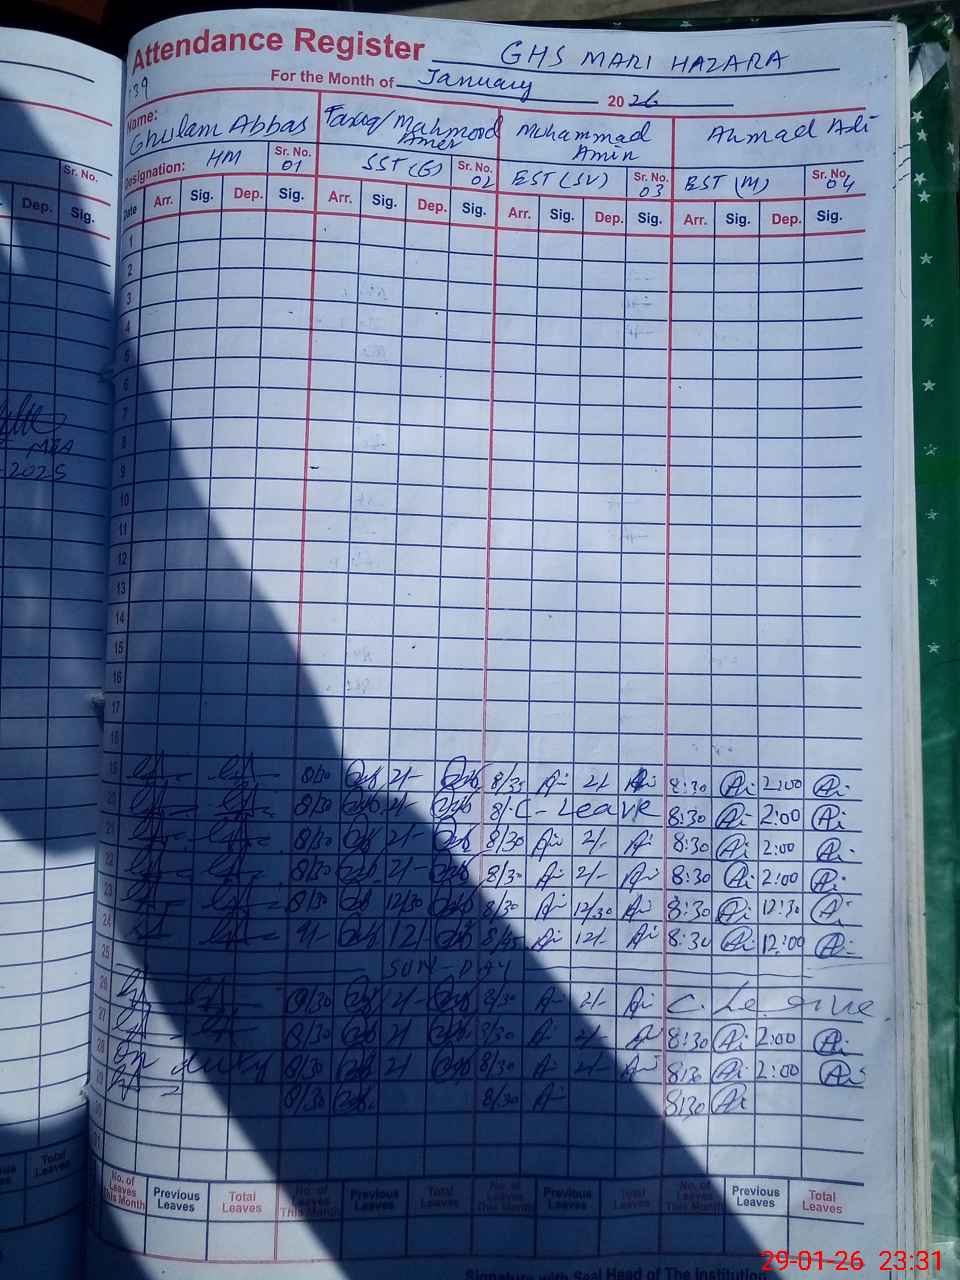 Attendance Register GHS MARI HAZARA
For the Month of January 2026
39
Name: Ghulam Abbas Tariq/Mahmood Amer Muhammad Amin Ahmad Ali
Designation: HM Sr. No. 01 SST (G) Sr. No. 02 EST (SV) Sr. No. 03 EST (M) Sr. No. 04
Date Arr. Sig. Dep. Sig. Arr. Sig. Dep. Sig. Arr. Sig. Dep. Sig. Arr. Sig. Dep. Sig.
1
2
3
4
5
6
7
8
9
10
11
12
13
14
15
16
17
18
19 8/30 2/- 8/30 2/- 8:30 2:00
20 8/30 2/- 8/ C-Leave 8:30 2:00
21 8/30 2/- 8/30 2/- 8:30 2:00
22 8/30 2/- 8/30 2/- 8:30 2:00
23 8/30 12/30 8/30 12/30 8:30 12:30
24 9/- 12/- 8/45 12/- 8:30 12:00
25 SUN-DAY
26 8/30 2/- 8/30 2/- C. Leave
27 8/30 2/ 8/30 2/- 8:30 2:00
28 On duty 8/30 2/ 8/30 2/- 8:30 2:00
29 8/30 8/30 8:30
30
31
No. of Leaves This Month Previous Leaves Total Leaves No. of Leaves This Month Previous Leaves Total Leaves No. of Leaves This Month Previous Leaves Total Leaves No. of Leaves This Month Previous Leaves Total Leaves
Signature with Seal Head of The Institution
Sr. No.
Dep. Sig.
-2025
Total Leaves
29-01-26 23:31